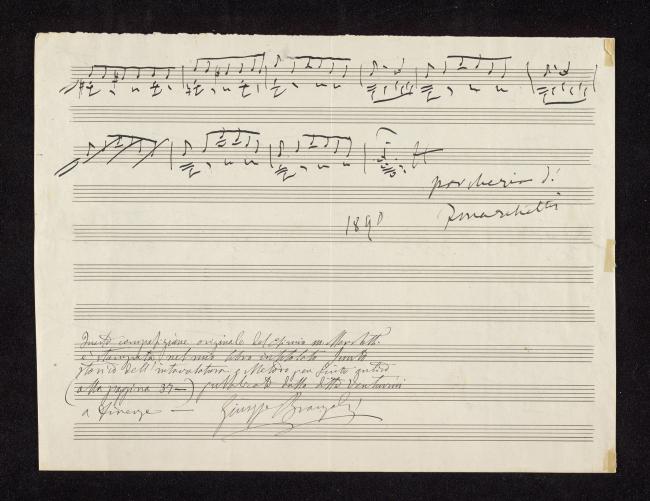 porcheria di
F Marchetti
1890
Questa composizione originale del chmo m. Marchetti
è stampata nel mio libro intitolato
storico dell'intavolatura e Metodo per liuto
(alla pagina 37—) pubblicato dalla ditta Venturini
a Firenze —
Giuseppe Branzoli